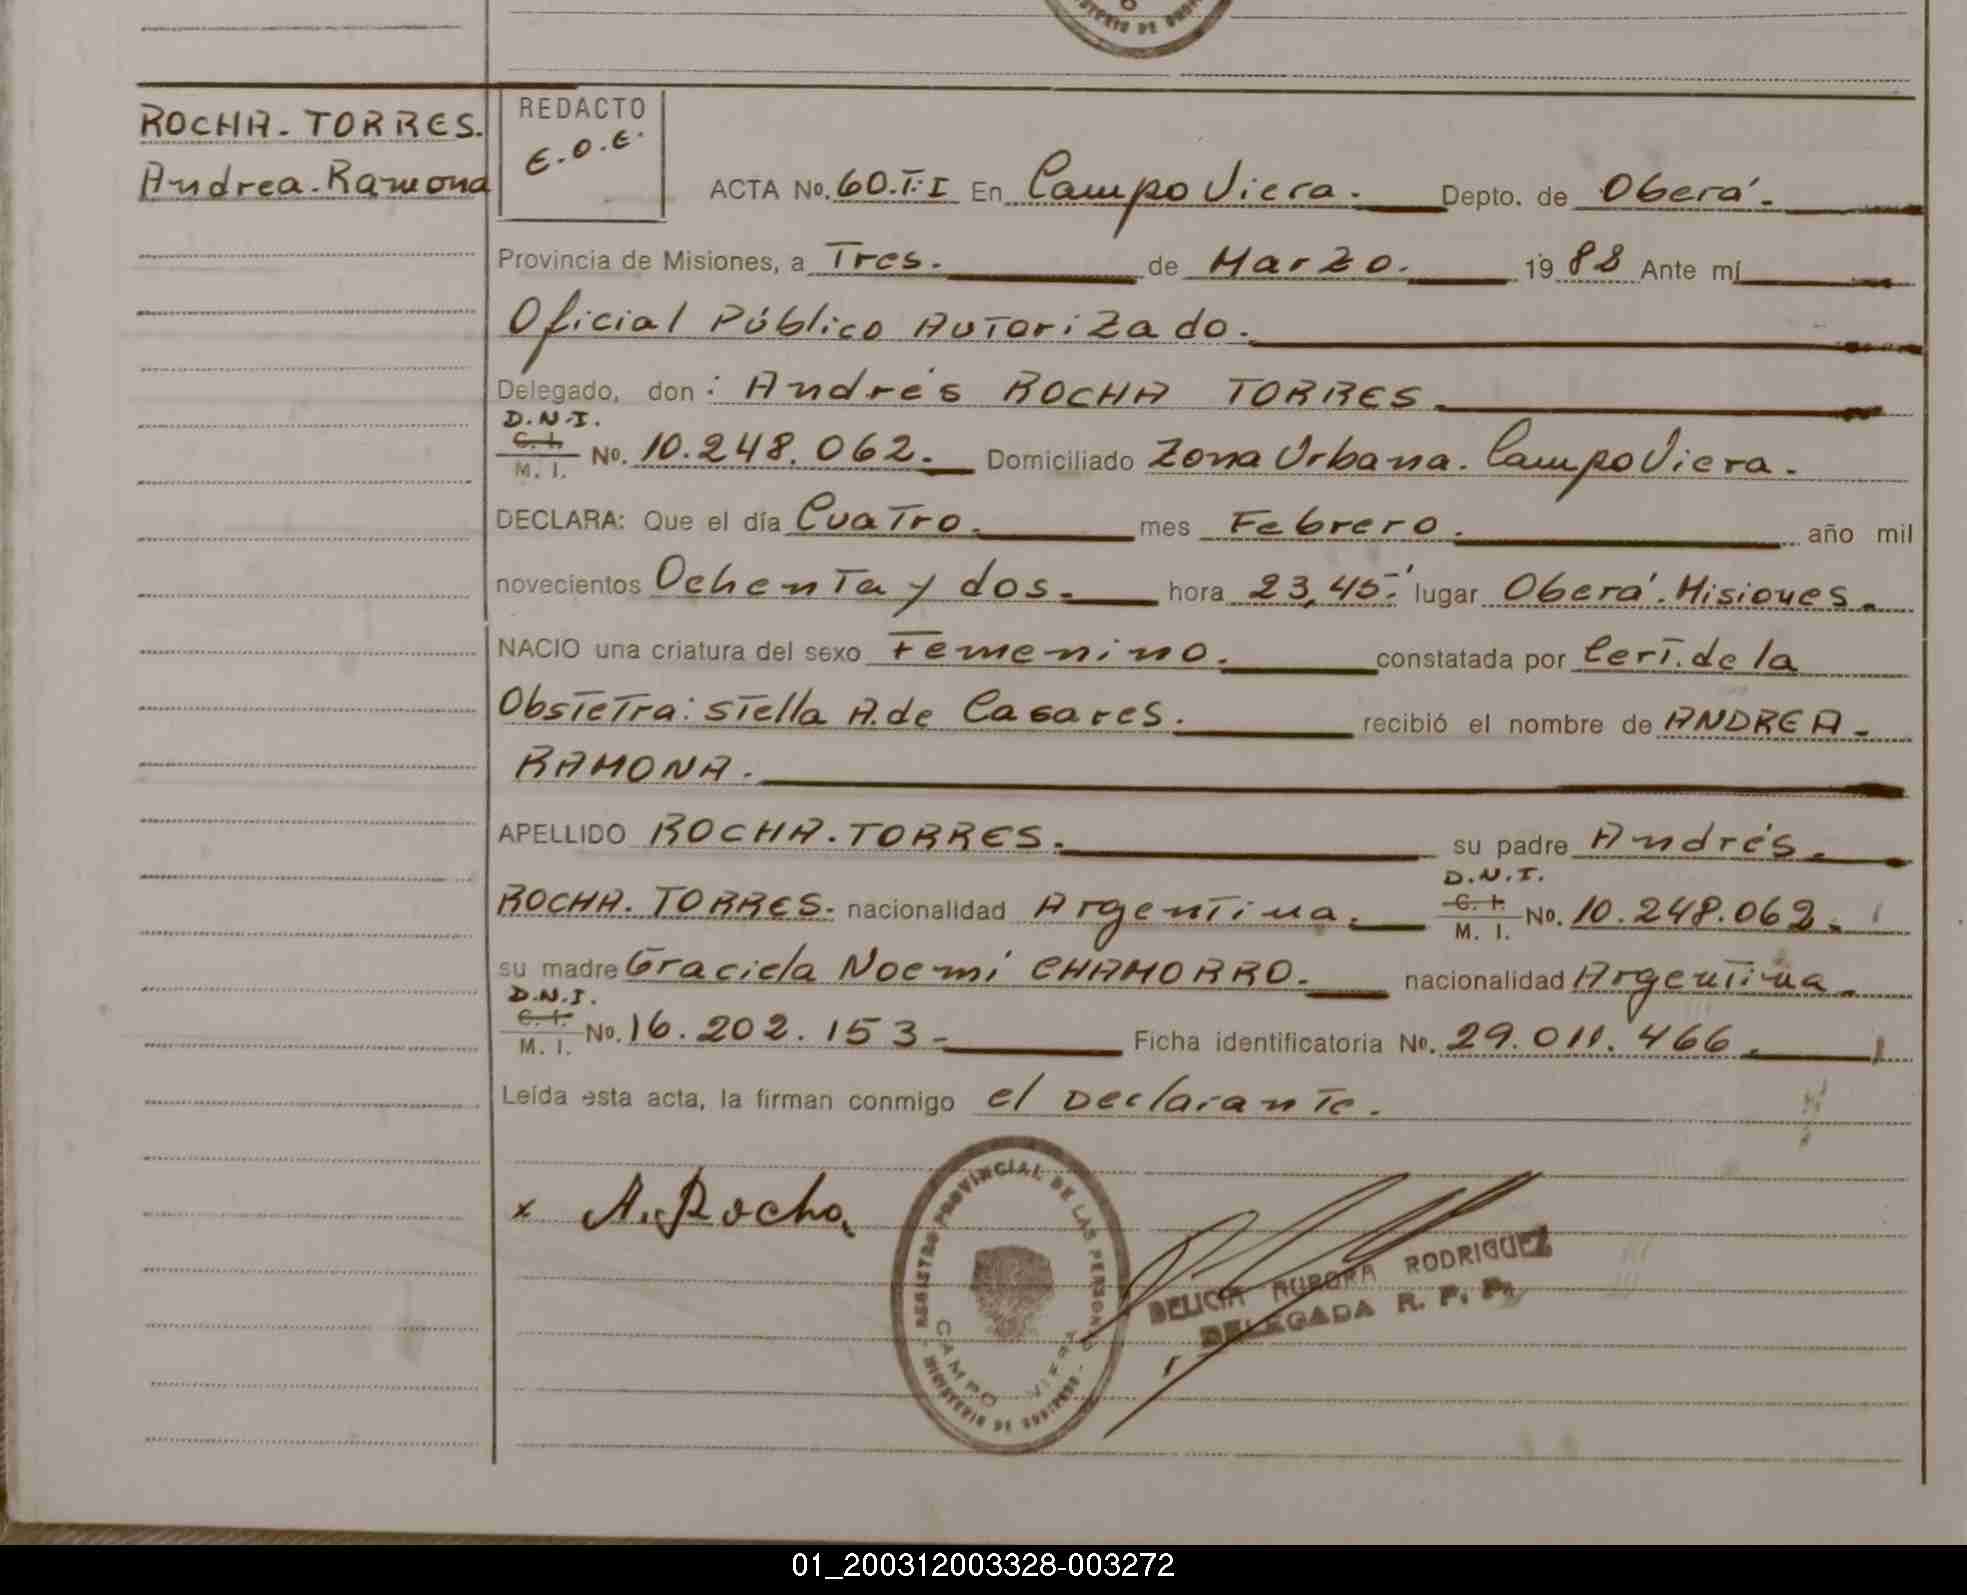 ROCHA-TORRES.
Andrea-Ramona
REDACTO
E.O.E.
ACTA No. 60.T:I En Campo Viera. Depto. de Oberá.
Provincia de Misiones, a Tres. de Marzo. 1988 Ante mí
Oficial Público Autorizado.
Delegado, don: Andrés ROCHA TORRES
D.N.I.
C. I.
M. I. No. 10.248.062. Domiciliado Zona Urbana. Campo Viera.
DECLARA: Que el día Cuatro. mes Febrero. año mil
novecientos Ochenta y dos. hora 23,45.' lugar Oberá. Misiones.
NACIO una criatura del sexo Femenino. constatada por Cert. de la
Obstetra: Stella A. de Casares. recibió el nombre de ANDREA-
RAMONA.
APELLIDO ROCHA.TORRES. su padre Andrés.
ROCHA. TORRES. nacionalidad Argentina. D.N.I. C. I. M. I. No. 10.248.062.
su madre Graciela Noemí CHAMORRO. nacionalidad Argentina.
D.N.I.
C. I.
M. I. No. 16.202.153- Ficha identificatoria No. 29.011.466.
Leída esta acta, la firman conmigo el Declarante.
x A. Rocha
REGISTRO PROVINCIAL DE LAS PERSONAS
CAMPO VIERA
MINISTERIO DE
DELICIA AURORA RODRIGUEZ
DELEGADA R. P. P.
01_200312003328-003272